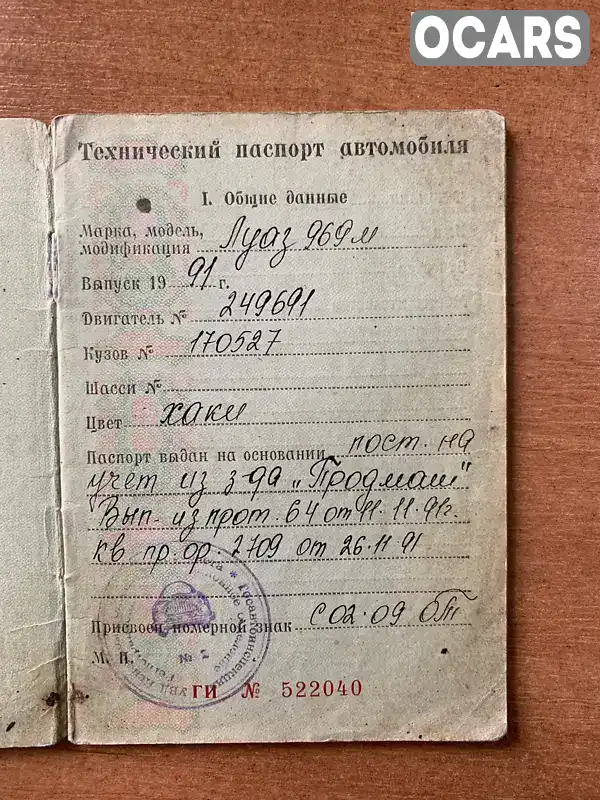 OCARS
Технический паспорт автомобиля
I. Общие данные
Марка, модель,
модификация Луаз 969м
Выпуск 19 91 г.
Двигатель № 249691
Кузов № 170527
Шасси №
Цвет хаки
Паспорт выдан на основании пост. на
учет из з-да „Продмаш"
Вып. из прот. 64 от 11.11.91г.
кв. пр. ор. 2709 от 26.11.91
Присвоен номерной знак с 02-09 ОТ
М. П.
ГИ № 522040